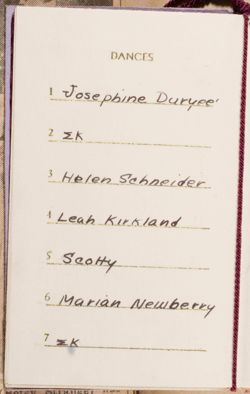 DANCES
1 Josephine Duryee'
2 ΣK
3 Helen Schneider
4 Leah Kirkland
5 Scotty
6 Marian Newberry
7 ΣK